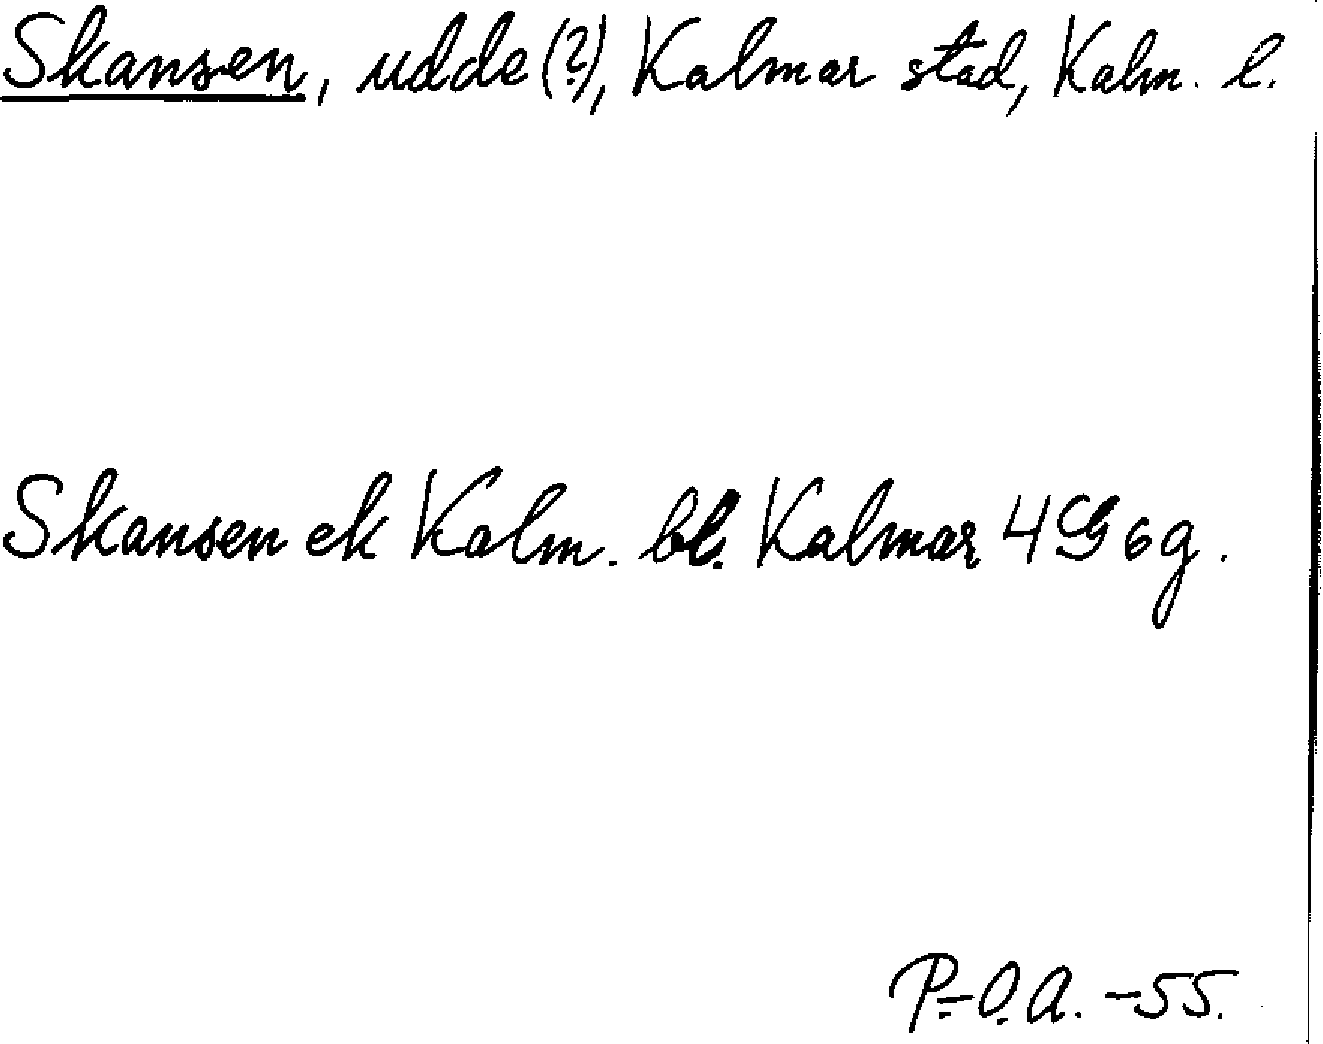 Skansen, udde (?), Kalmar stad, Kalm. l.
Skansen ek Kalm. bl. Kalmar 4G 6g.
P.-O.A. -55.